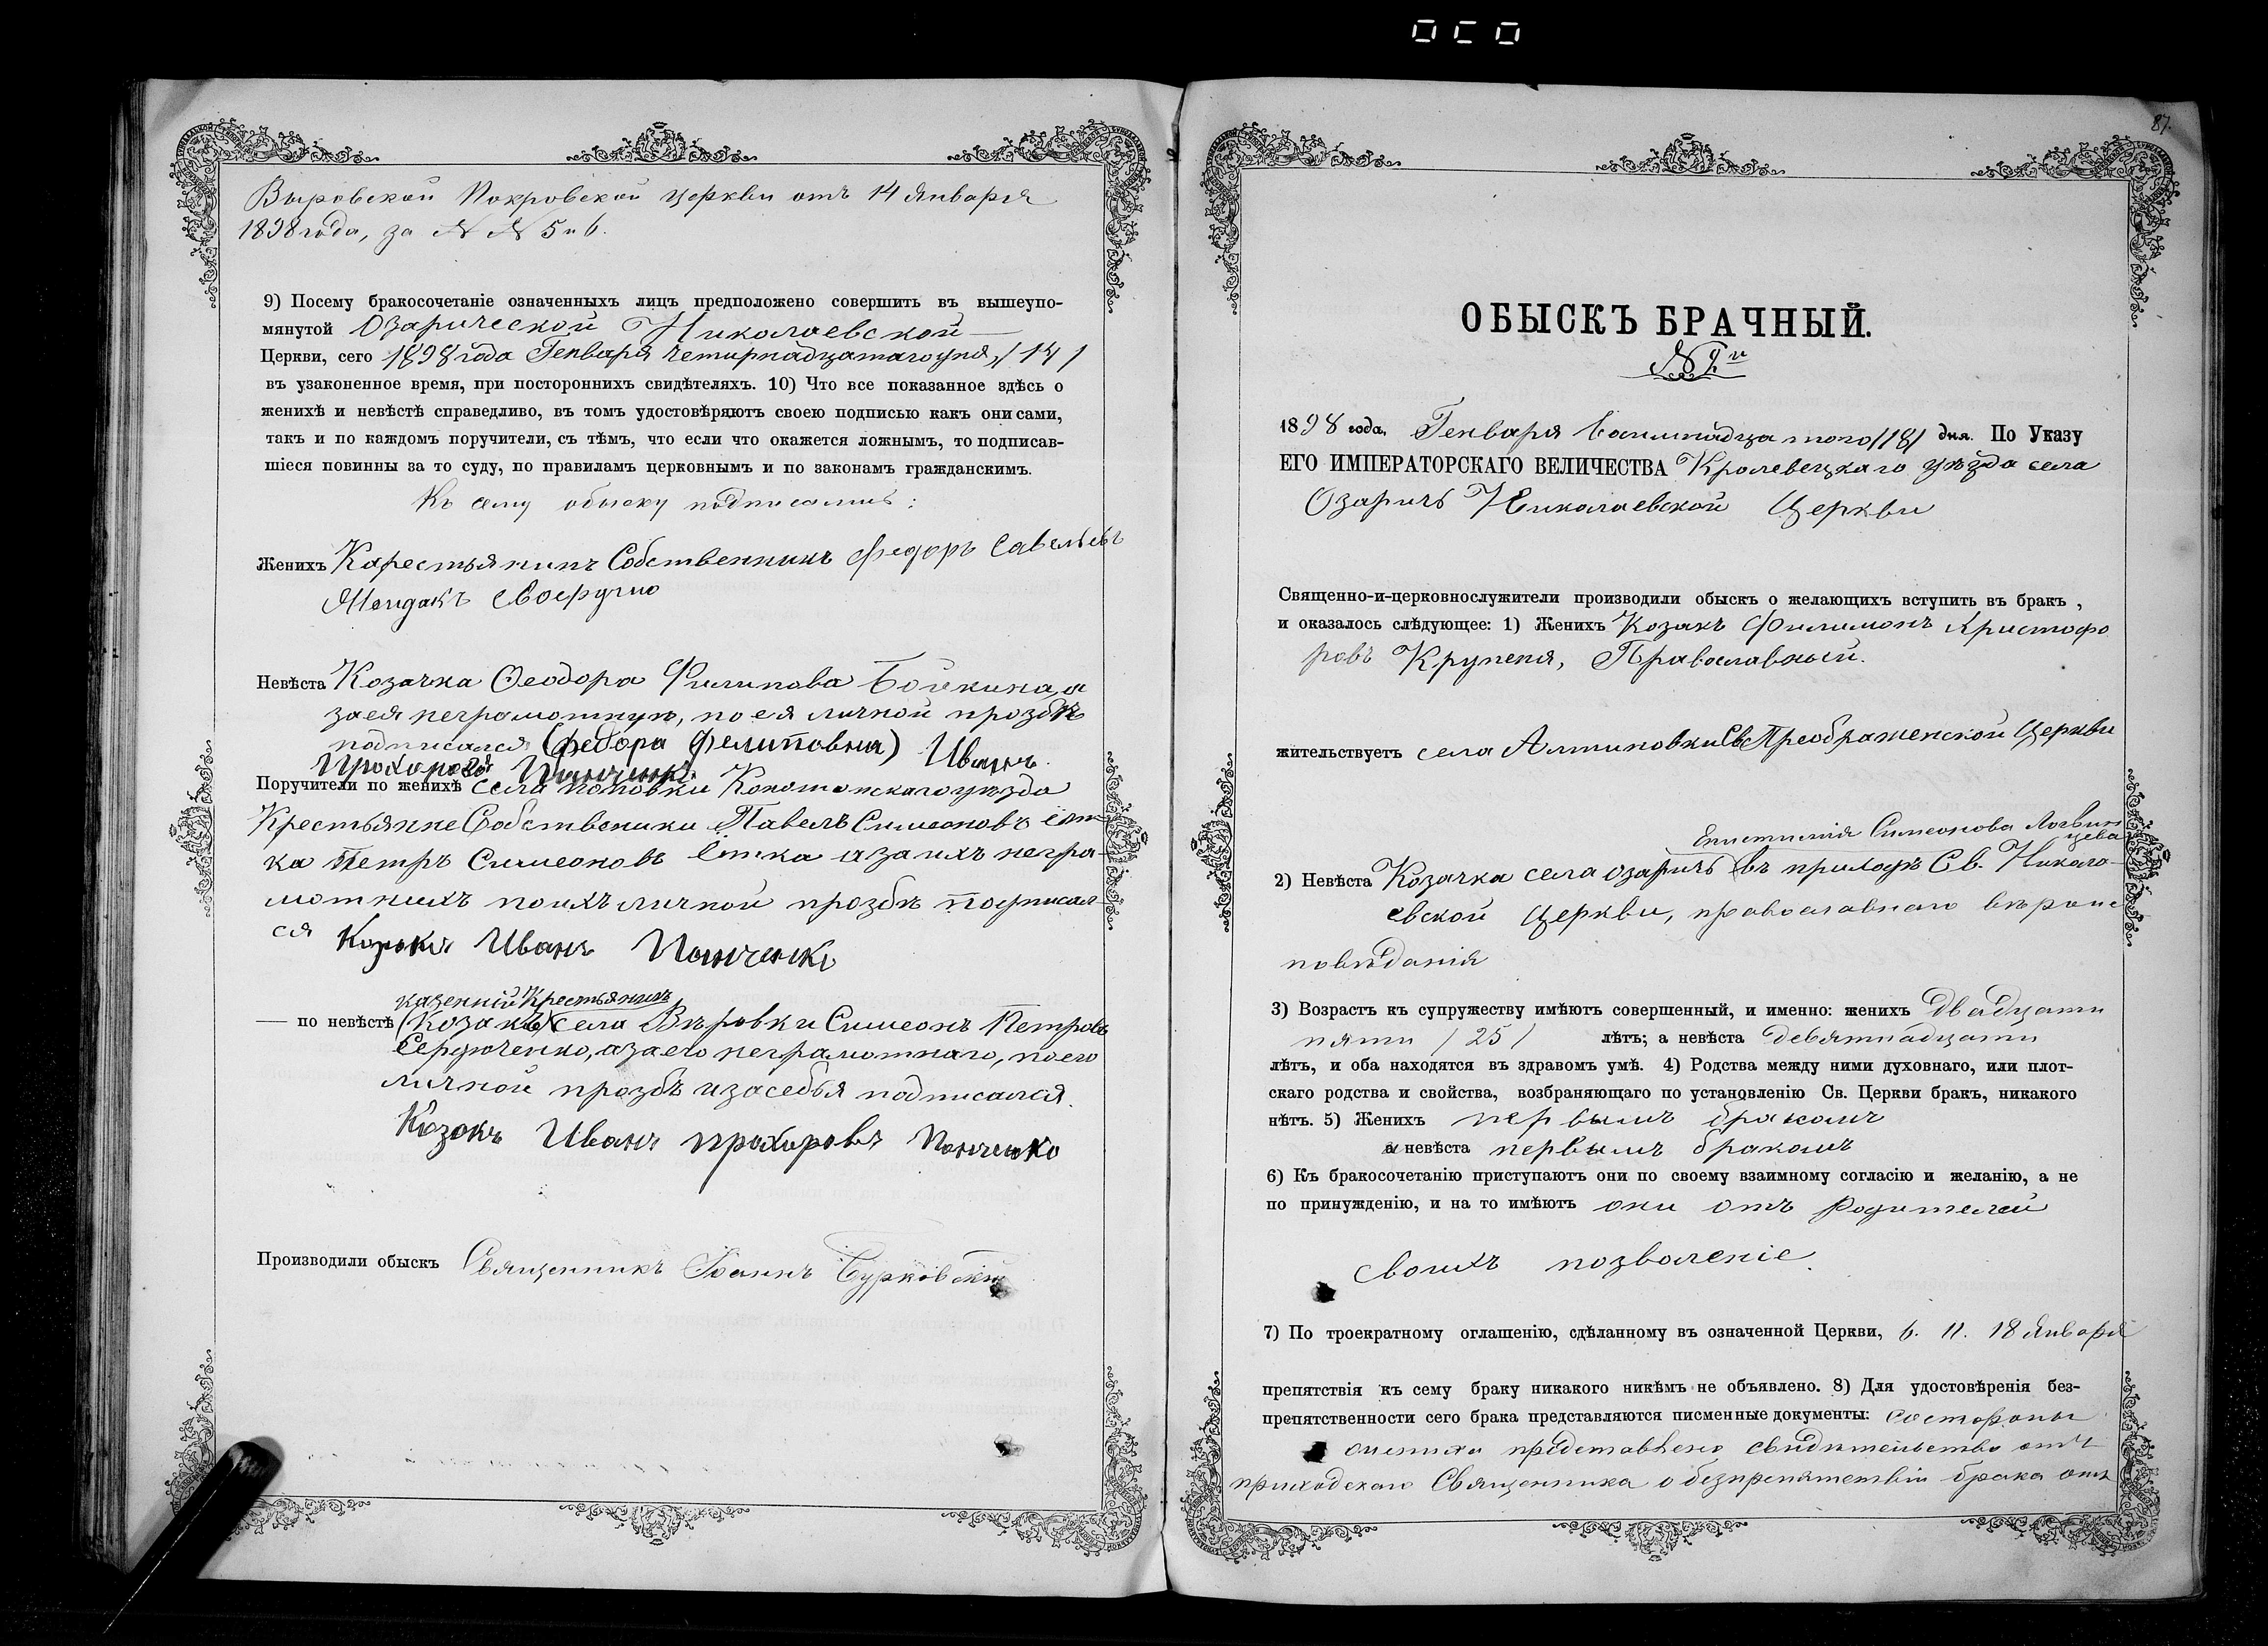 Выровской Покровской церкви отъ 14 Января
1898 года, за N N 5 и 6.
9) Посему бракосочетаніе означенныхъ лицъ предположено совершить въ вышеупо-
мянутой Озарической Николаевской
Церкви, сего 1898 года Генваря четирнадцатаго дня, / 14 /
въ узаконенное время, при постороннихъ свидѣтеляхъ. 10) Что все показанное здѣсь о
женихѣ и невѣстѣ справедливо, въ томъ удостовѣряютъ своею подписью какъ они сами,
такъ и по каждомъ поручители, съ тѣмъ, что если что окажется ложнымъ, то подписав-
шіеся повинны за то суду, по правиламъ церковнымъ и по законамъ гражданскимъ.
Къ сему обыску подписались:
Женихъ Карестьянинъ Собственникъ Федоръ Савельевъ
своеручно
Невѣста Козачка Феодора Филипова Бойкина, а
за ея неграмотную, по ея личной прозбѣ
подписался (Федора Фелиповна) Иванъ
Прохоровъ Панченко.
Поручители по женихѣ села Поповки Конотопскаго уезда
Крестьянне Собственики Павелъ Симеоновъ Ет
ка Петръ Симеоновъ Етка а за ихъ негра-
мотнихъ по ихъ личной прозбѣ подписал-
ся Козакъ Иванъ Панченко
казенній Крестьянинъ
— по невѣстѣ (Козакъ) села Выровки Симеонъ Петровъ
Сердюченко, а за его неграмотнаго, по его
личной прозбѣ и за себья подписался.
Козакъ Иванъ Прохоровъ Панченко
Производили обыскъ Священникъ Іоаннъ Бурковскій
87.
ОБЫСКЪ БРАЧНЫЙ.
N 9й
1898 года, Генваря Восимнадцатого /18/ дня. По Указу
ЕГО ИМПЕРАТОРСКАГО ВЕЛИЧЕСТВА Кролевецкаго уѣзда села
Озаричъ Николаевской Церкви
Священно-и-церковнослужители производили обыскъ о желающихъ вступить въ бракъ ,
и оказалось слѣдующее: 1) Женихъ Козакъ Филимонъ Христофо
ровъ Крупеня, Православный.
жительствуетъ села Алтиновки Св Преображенской Церкви
Епистимія Симеонова Логвин
цева
2) Невѣста Козачка села Озаричъ въ приходѣ Св. Никола-
евской Церкви, православнаго вѣроис
повѣданія
3) Возрастъ къ супружеству имѣютъ совершенный, и именно: женихъ Двадцати
пяти / 25 / лѣтъ; а невѣста девятнадцати
лѣтъ, и оба находятся въ здравомъ умѣ. 4) Родства между ними духовнаго, или плот-
скаго родства и свойства, возбраняющаго по установленію Св. Церкви бракъ, никакого
нѣтъ. 5) Женихъ первымъ бракомъ
а невѣста первымъ бракомъ
6) Къ бракосочетанію приступаютъ они по своему взаимному согласію и желанію, а не
по принужденію, и на то имѣютъ они отъ Родителей
своихъ позволеніе.
7) По троекратному оглашенію, сдѣланному въ означенной Церкви, 6. 11. 18 Января
препятствія къ сему браку никакого никѣмъ не объявлено. 8) Для удостовѣренія без-
препятственности сего брака представляются писменные документы: со стороны
представлено свидѣтельство отъ
приходскаго Священника о безпрепятствіи брака отъ